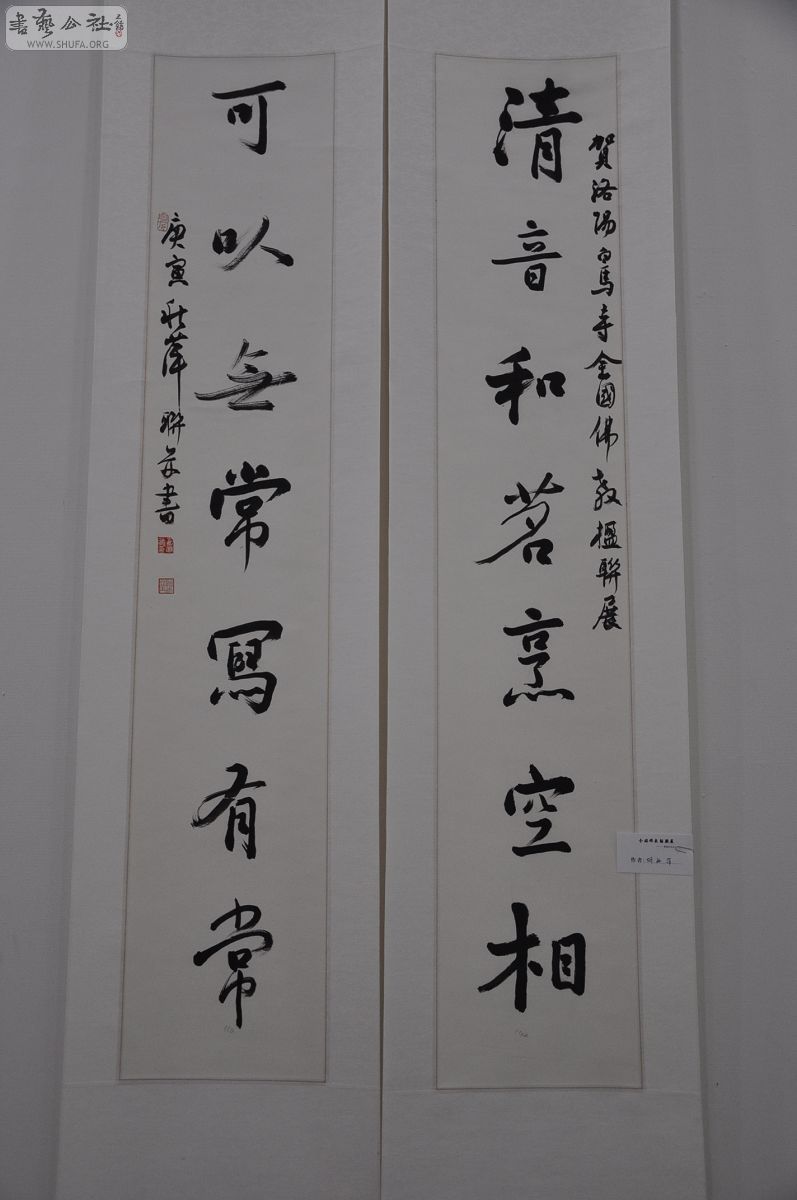 書藝公社
WWW.SHUFA.ORG
賀洛陽白馬寺全國佛教楹聯展
清音和茗烹空相
可以無常寫有常
庚寅秋萍聯并書